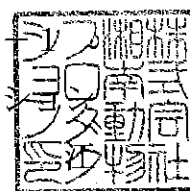 株式会社
湘南動物
プロダク
ション印